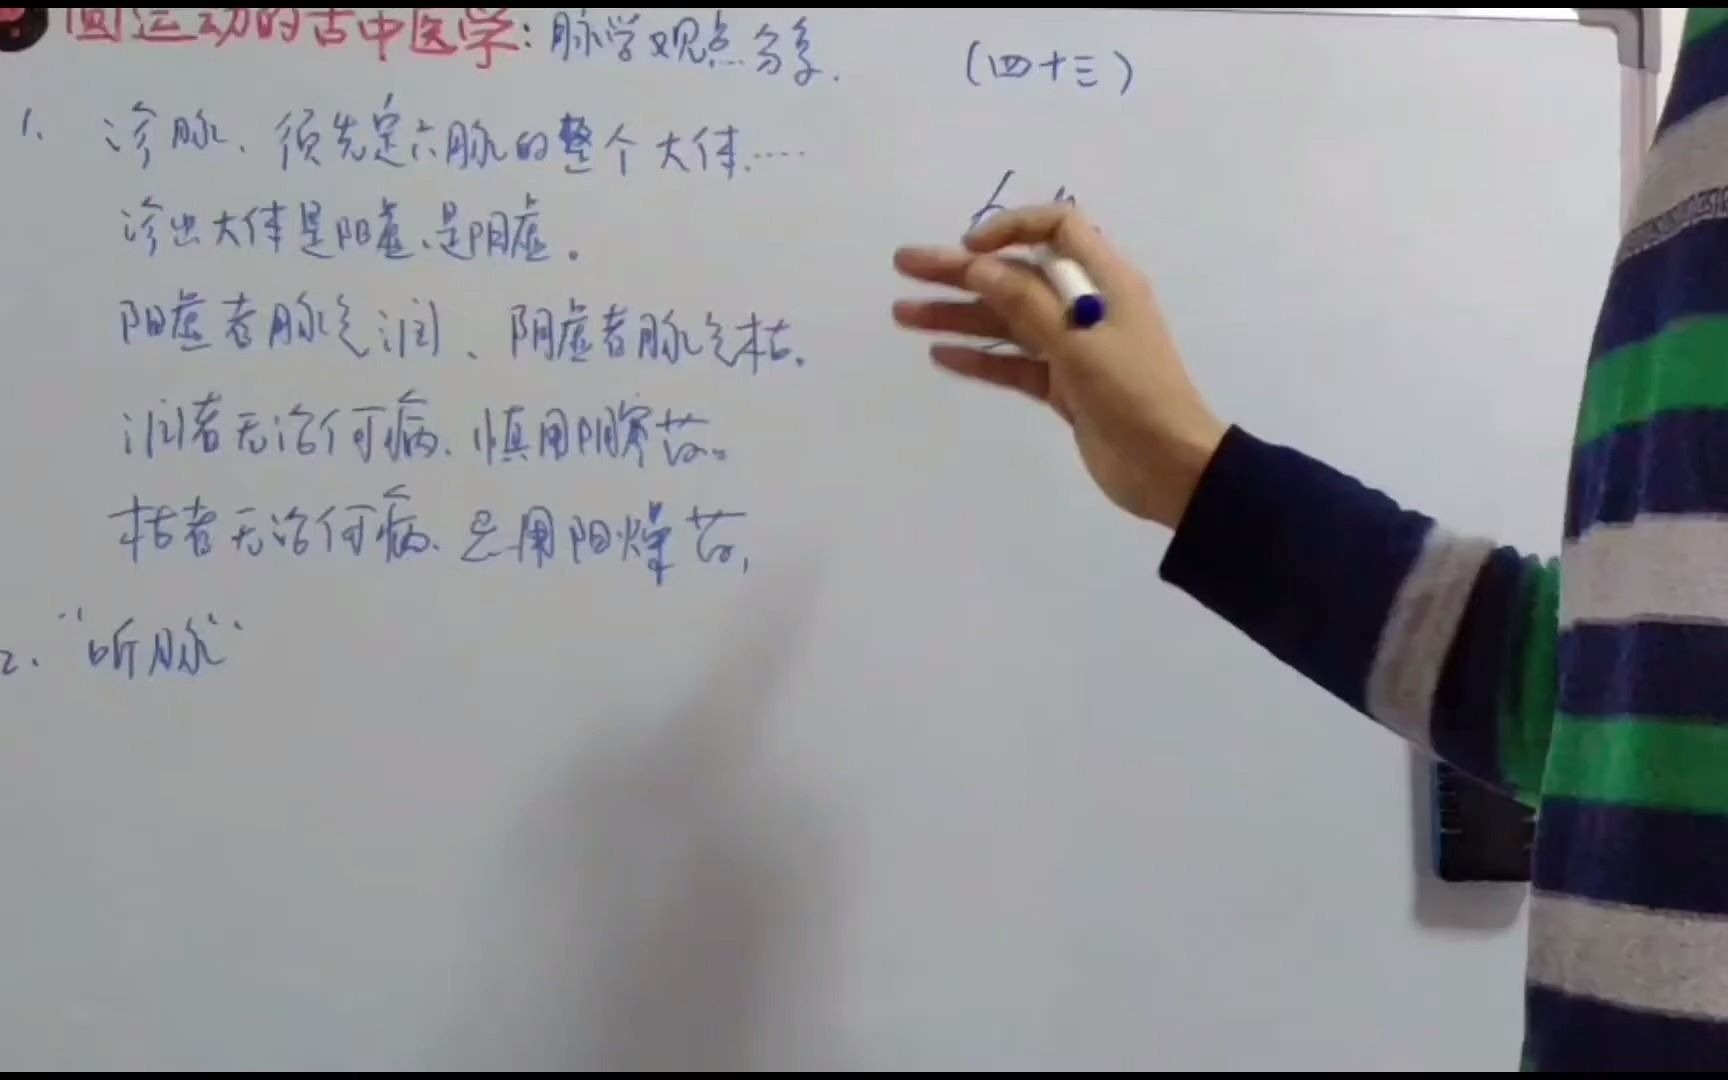 圆运动的古中医学:脉学观点分享.
(四十三)
1. 诊脉、须先定六脉的整个大体.....
诊出大体是阳虚、是阴虚。
阳虚者脉气润、阴虚者脉气枯。
润者无论何病、慎用阴寒药。
枯者无论何病、忌用阳燥药,
2. "听脉"